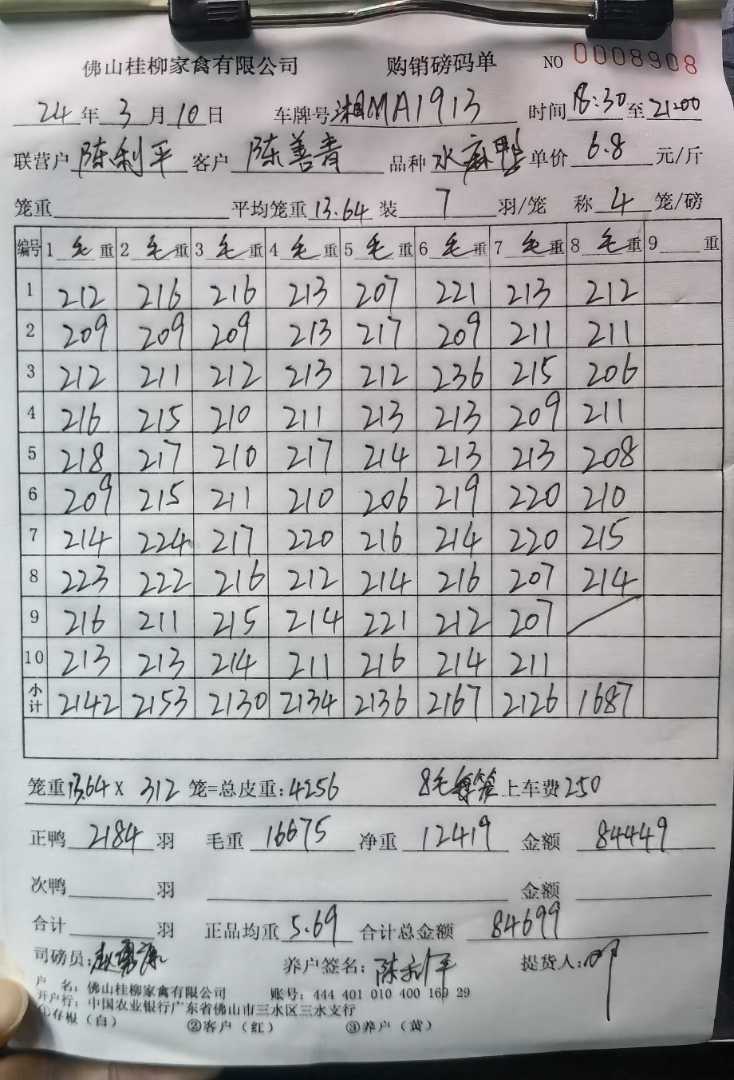 佛山桂柳家禽有限公司 购销磅码单 NO 0008908
24年3月10日 车牌号湘MA1913 时间18:30至21:00
联营户陈利平 客户陈善青 品种水麻鸭 单价6.8元/斤
笼重 平均笼重13.64 装7羽/笼 称4笼/磅
编号 1毛重 2毛重 3毛重 4毛重 5毛重 6毛重 7毛重 8毛重 9重
1 212 216 216 213 207 221 213 212
2 209 209 209 213 217 209 211 211
3 212 211 212 213 212 236 215 206
4 216 215 210 211 213 213 209 211
5 218 217 210 217 214 213 213 208
6 209 215 211 210 206 219 220 210
7 214 224 217 220 216 214 220 215
8 223 222 216 212 214 216 207 214
9 216 211 215 214 221 212 207
10 213 213 214 211 216 214 211
小计 2142 2153 2130 2134 2136 2167 2126 1687
笼重13.64 x 312笼=总皮重:4256 8毛 上车费250
正鸭2184羽 毛重16675 净重12419 金额84449
次鸭羽 金额
合计羽 正品均重5.69 合计总金额84699
司磅员: 养户签名:陈利平 提货人:
户名:佛山桂柳家禽有限公司 账号:444 401 010 400 169 29
开户行:中国农业银行广东省佛山市三水区三水支行
①存根(白) ②客户(红) ③养户(黄)